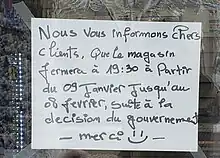 Nous Vous informons Chers
Clients, Que le magasin
fermera à 19:30 à Partir
du 09 Janvier Jusqu'au
08 fevrier, suite à la
decision du gouvernement
— merci —